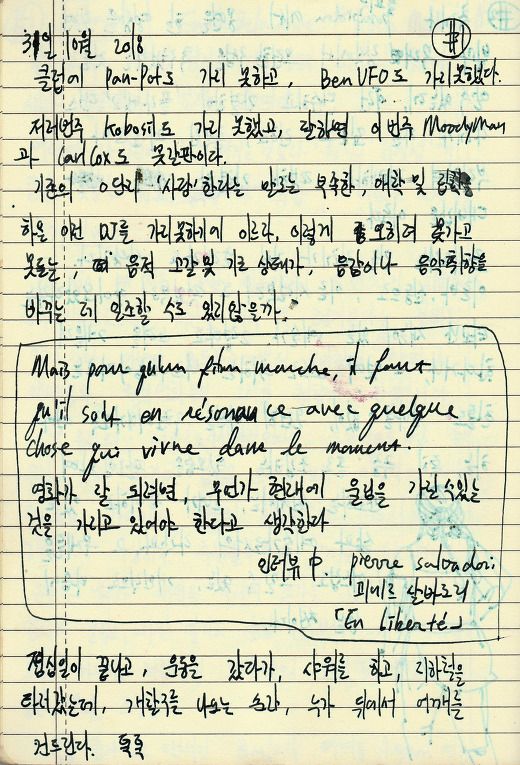 31일 10월 2018
클럽에 Pan-Pot도 가지 못하고, Ben UFO도 가지못했다.
저저번주 Kobosil도 가지 못했고, 말하면 이번주 MoodyMan
과 Carl Cox도 못갈판이다.
기존의 사랑한다는 말로는 부족한, 애착 및
하는 DJ를 가지못하기에 이르라, 이렇게 오히려 못가고
못듣는, 음적 고갈 및 기근 상태가, 음감이나 음악폭향을
바꾸는 데 일조할 수도 있지않을까.
Mais pour qu'un film marche, il faut
qu'il soit en résonance avec quelque
chose qui vivne dans le moment.
영화가 잘 되려면, 무언가 현재에 울림을 가질 수 있는
것을 가지고 있어야 한다고 생각한다
인터뷰 中. pierre salvadori
피에르 살바도리
「En liberté」
점심일이 끝나고, 운동을 갔다가, 샤워를 하고, 지하철을
타러갔는데, 개찰구를 나오는 순간, 누가 뒤에서 어깨를
건드린다. 톡톡